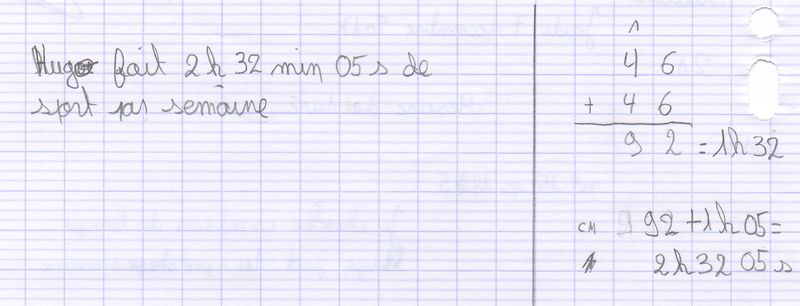 Hugo fait 2h 32 min 05 s de
sport par semaine
1
46
+ 46
92 = 1h 32
CM 92 + 1h 05 =
2h 32 05 s